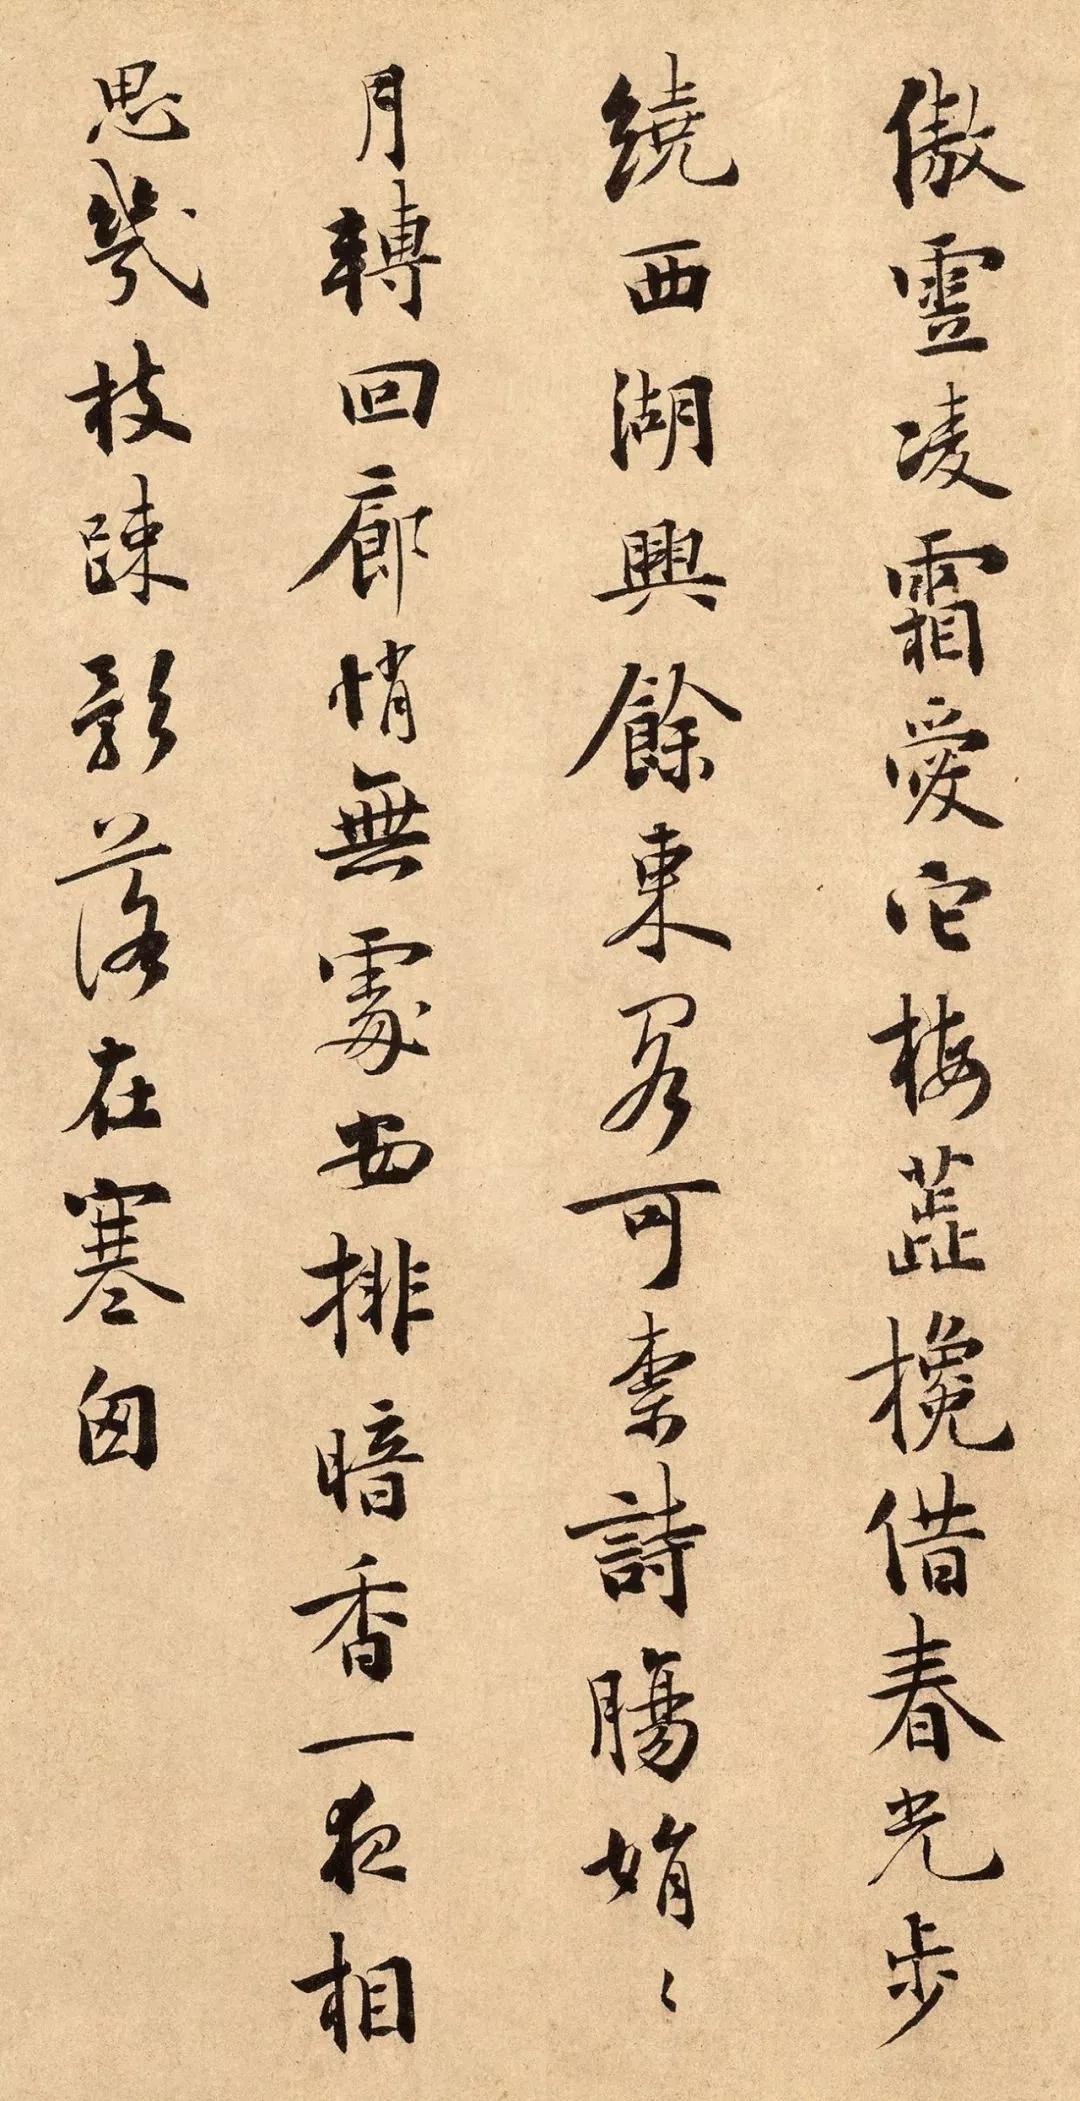 傲雪凌霜愛它梅蕊攙借春光步
繞西湖興餘東閣可柰詩腸娟〻
月轉回廊悄無處安排暗香一夜相
思幾枝疎影落在寒囱